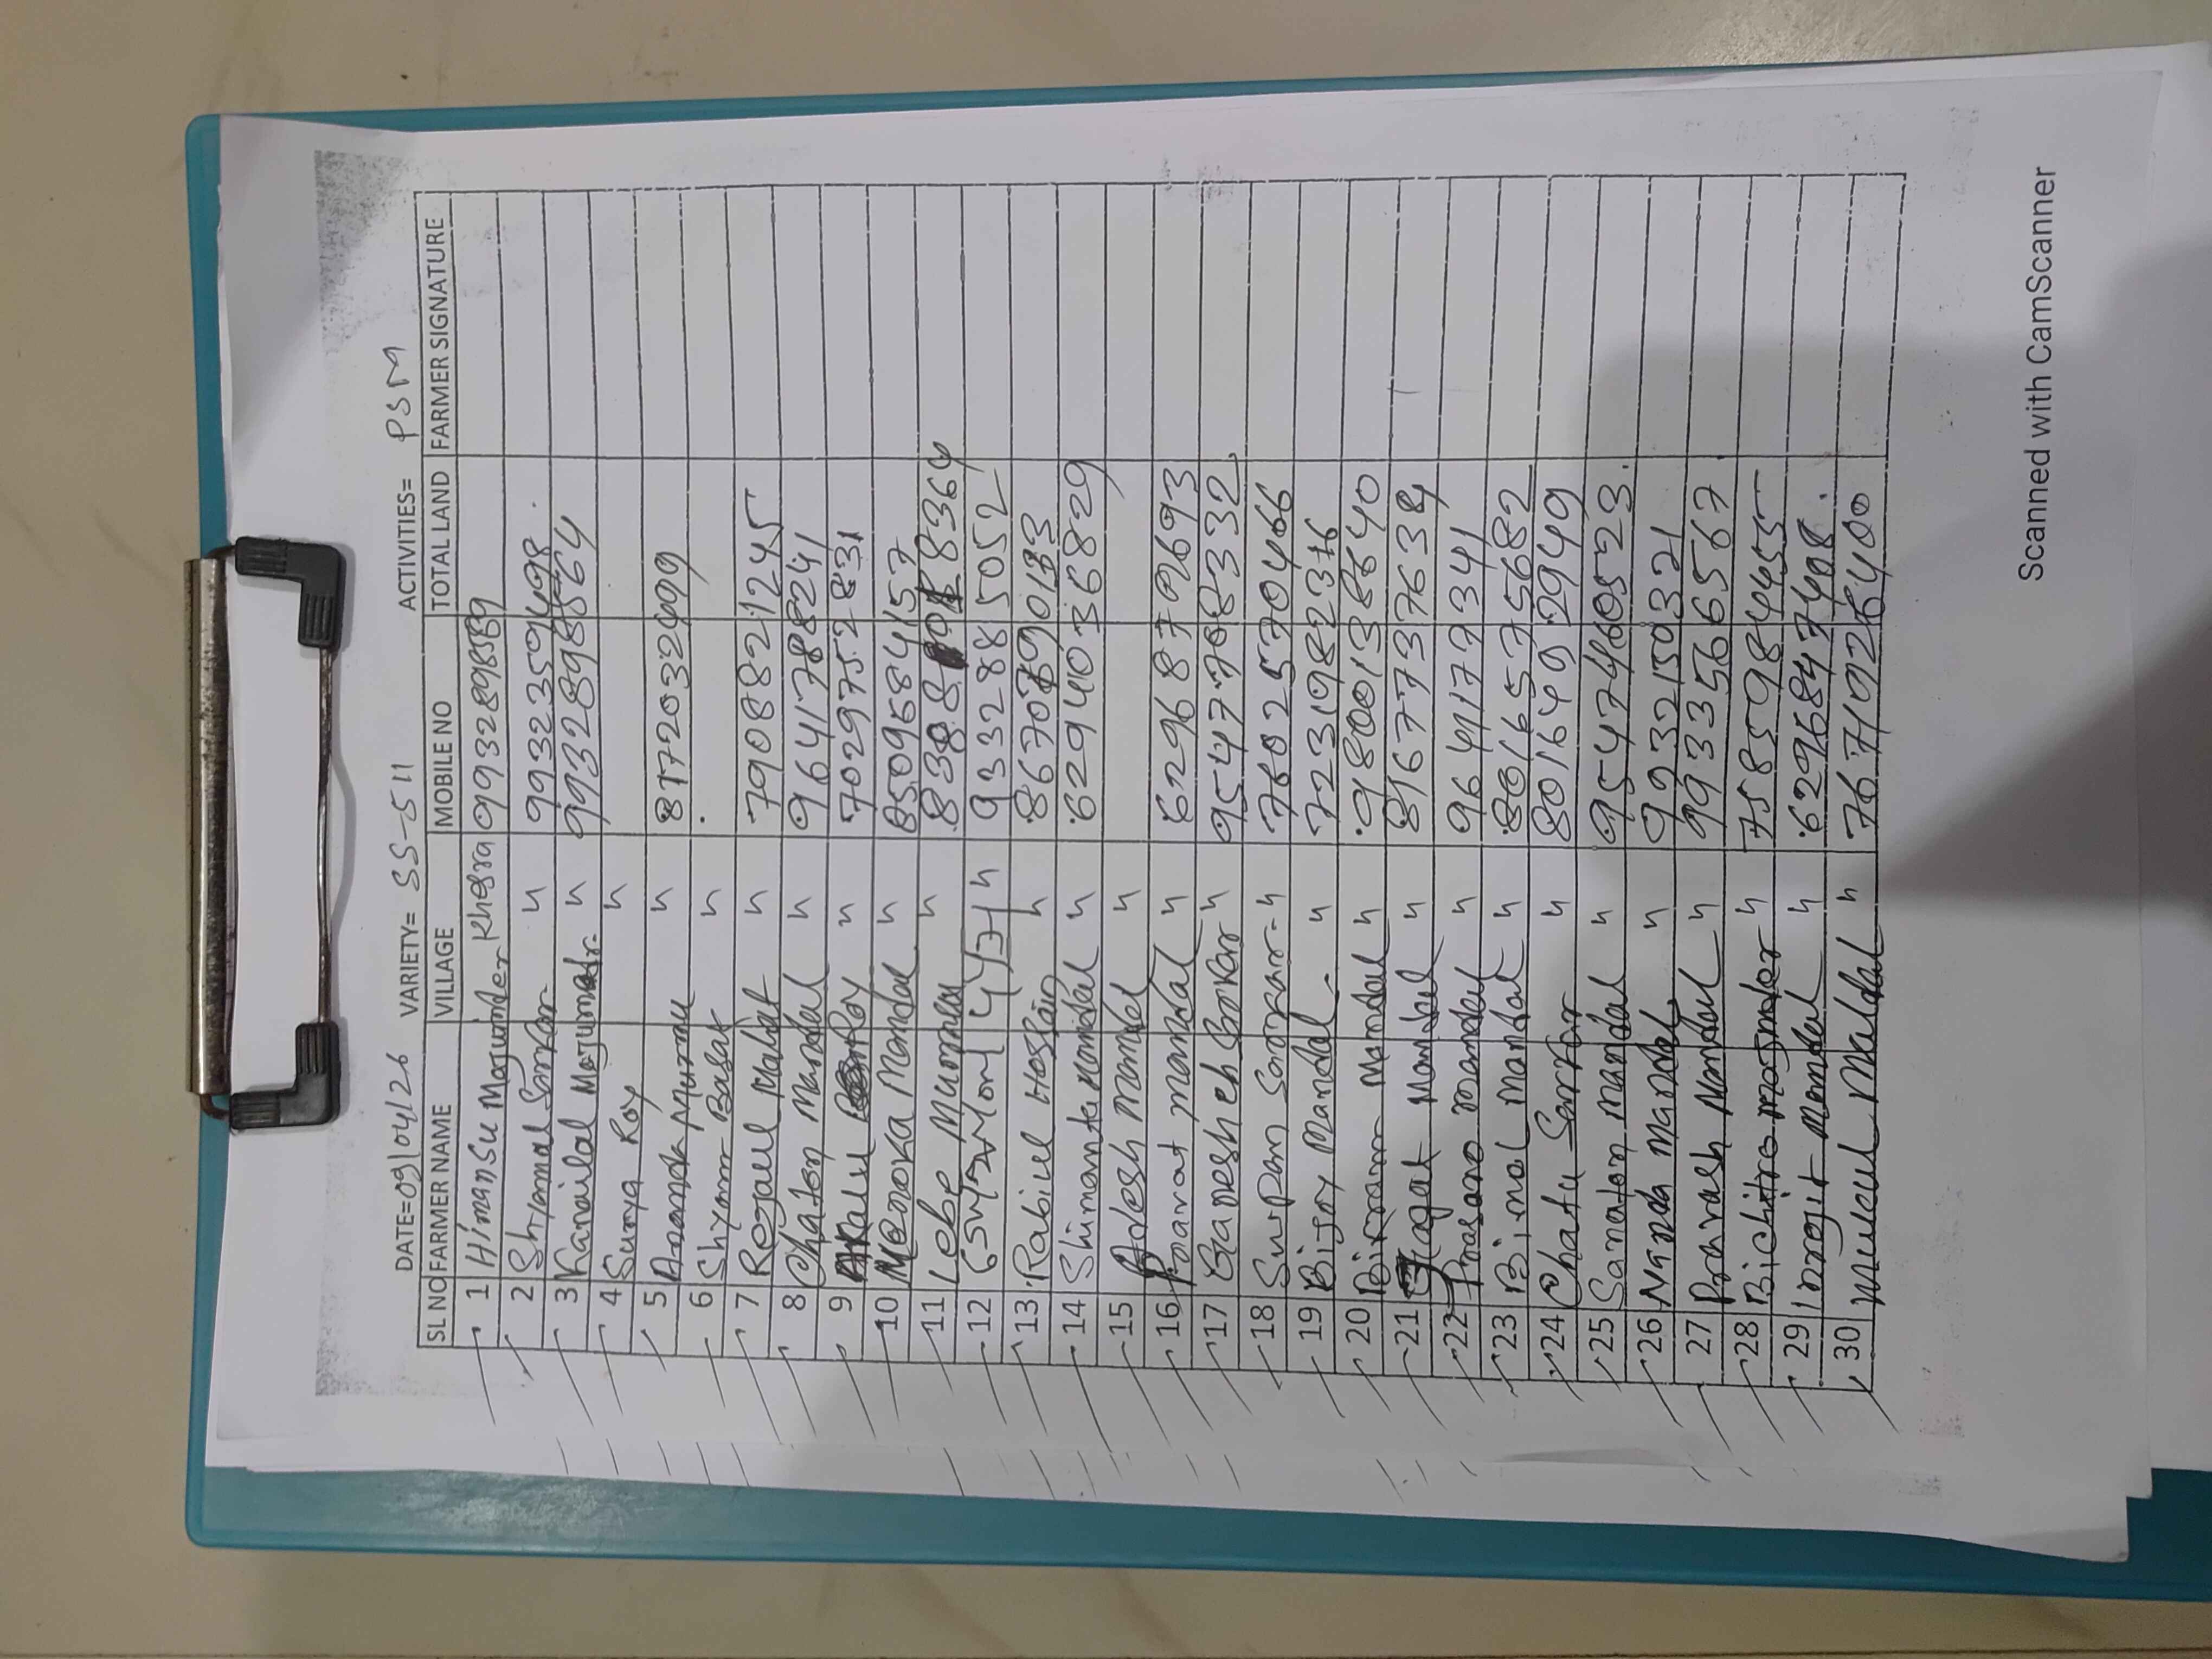 DATE=09/04/26 VARIETY= SS-511 ACTIVITIES= PSM
SL NO FARMER NAME VILLAGE MOBILE NO TOTAL LAND FARMER SIGNATURE
1 Himansu Majumder Khesra 9932898589
2 Shyamal Sarkar 〃 9932359498
3 Kanailal Majumdar 〃 9932898564
4 Surya Roy 〃
5 Ananda Murmu 〃 8172032499
6 Shyam Basak 〃
7 Rejaul 〃 7908821245
8 Chaton Mandal 〃 9641788241
9 Akalu Roy 〃 7029752831
10 Menoka Mandal 〃 8509584157
11 Lebe Murmu 〃 8364
12 〃 9332885052
13 Rabiul Hossain 〃 90133
14 Shimanta Mandal 〃 6294036829
15 Adesh Mandal 〃
16 Mandal 〃 6296879693
17 Ganesh Sarkar 〃 9547708332
18 Surpan Sarkar 〃 7602570466
19 Bijoy Mandal 〃 7231982376
20 Bikram Mandal 〃 9800138640
21 Jagat Mandal 〃 8167737638
22 Prasano Mandal 〃 9641177341
23 Bimal Mandal 〃 8016575682
24 Chatu Sarkar 〃 8016492949
25 Sanaton Mandal 〃 9547460523
26 Nanda Mandal 〃 9932150321
27 Prakash Mandal 〃 9933566567
28 Bichitra Mojumder 〃 7585984455
29 Indrojit Mondal 〃 6296847408
30 〃 7671926400
Scanned with CamScanner